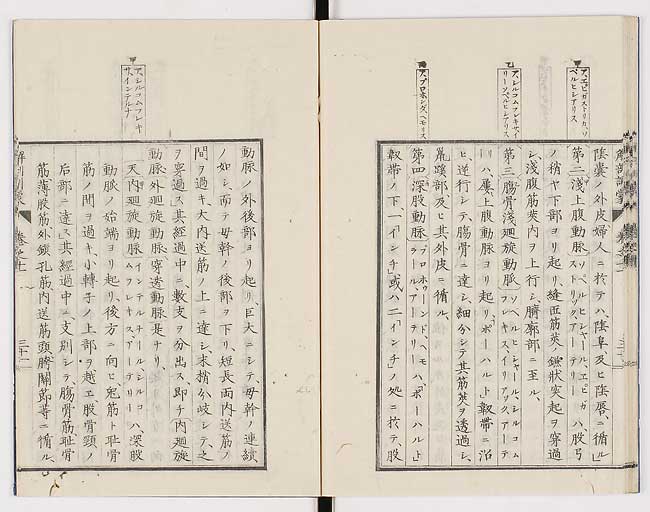 陰囊ノ外皮婦人ニ於テハ、陰阜及ヒ陰唇ニ循ル」
第二淺上腹動脈 ソペルヒシャール、エピガストリックアーテリー ハ股弓
ノ稍ヤ下部ヨリ起リ縫匠筋莢ノ鎌狀突起ヲ穿過
シ、淺腹筋莢内ヲ上行シ、臍廓部ニ至ル、
第三腸骨淺廻旋動脈 ソペルヒシャール、シルコムフレキスイリアックアーテ
リーハ、屢上腹動脈ヨリ起リ、ポーハルト靱帯ニ沿
ヒ、逆行シテ腸骨ニ達シ、細分シテ其筋莢ヲ透過シ、
鼠蹊部及ヒ其外皮ニ循ル、
第四深股動脈 プロホゥーンド、ヘモラールアーテリー ハ、「ポーハルト」
靱帯ノ下一「インチ」或ハ二「インチ」ノ処ニ於テ、股
アエピガストリカ、ソペルヒシアリス、
アシルコムフレキサイリー、ソペルヒシアリス
アプロホンダ、ヘモリス
三十
動脈ノ外後部ヨリ起リ、巨大ニシテ母幹ノ連續
ノ如シ、而テ母幹ノ後部ヲ下リ、短長両内送筋ノ
間ヲ過キ、大内送筋ノ上ニ達シ末梢分岐シテ之
ヲ穿過ス其經過中ニ、數支ヲ分出ス、即チ内廻旋
動脈外廻旋動脈穿透動脈是ナリ、
天内廻旋動脈 インテルナール、シルコムフレキスアーテリー ハ、深股
動脈ノ始端ヨリ起リ、後方ニ向ヒ、腰筋ト恥骨
筋ノ間ヲ過キ、小轉子ノ上部ヲ越エ股骨頸ノ
后部ニ達ス其經過中ニ、支別シテ腸骨筋恥骨
筋薄股筋外鎖孔筋内送筋頭髀關節等ニ循ル、
アシルコムフレキサ、インテルナ
解剖訓蒙
三十一